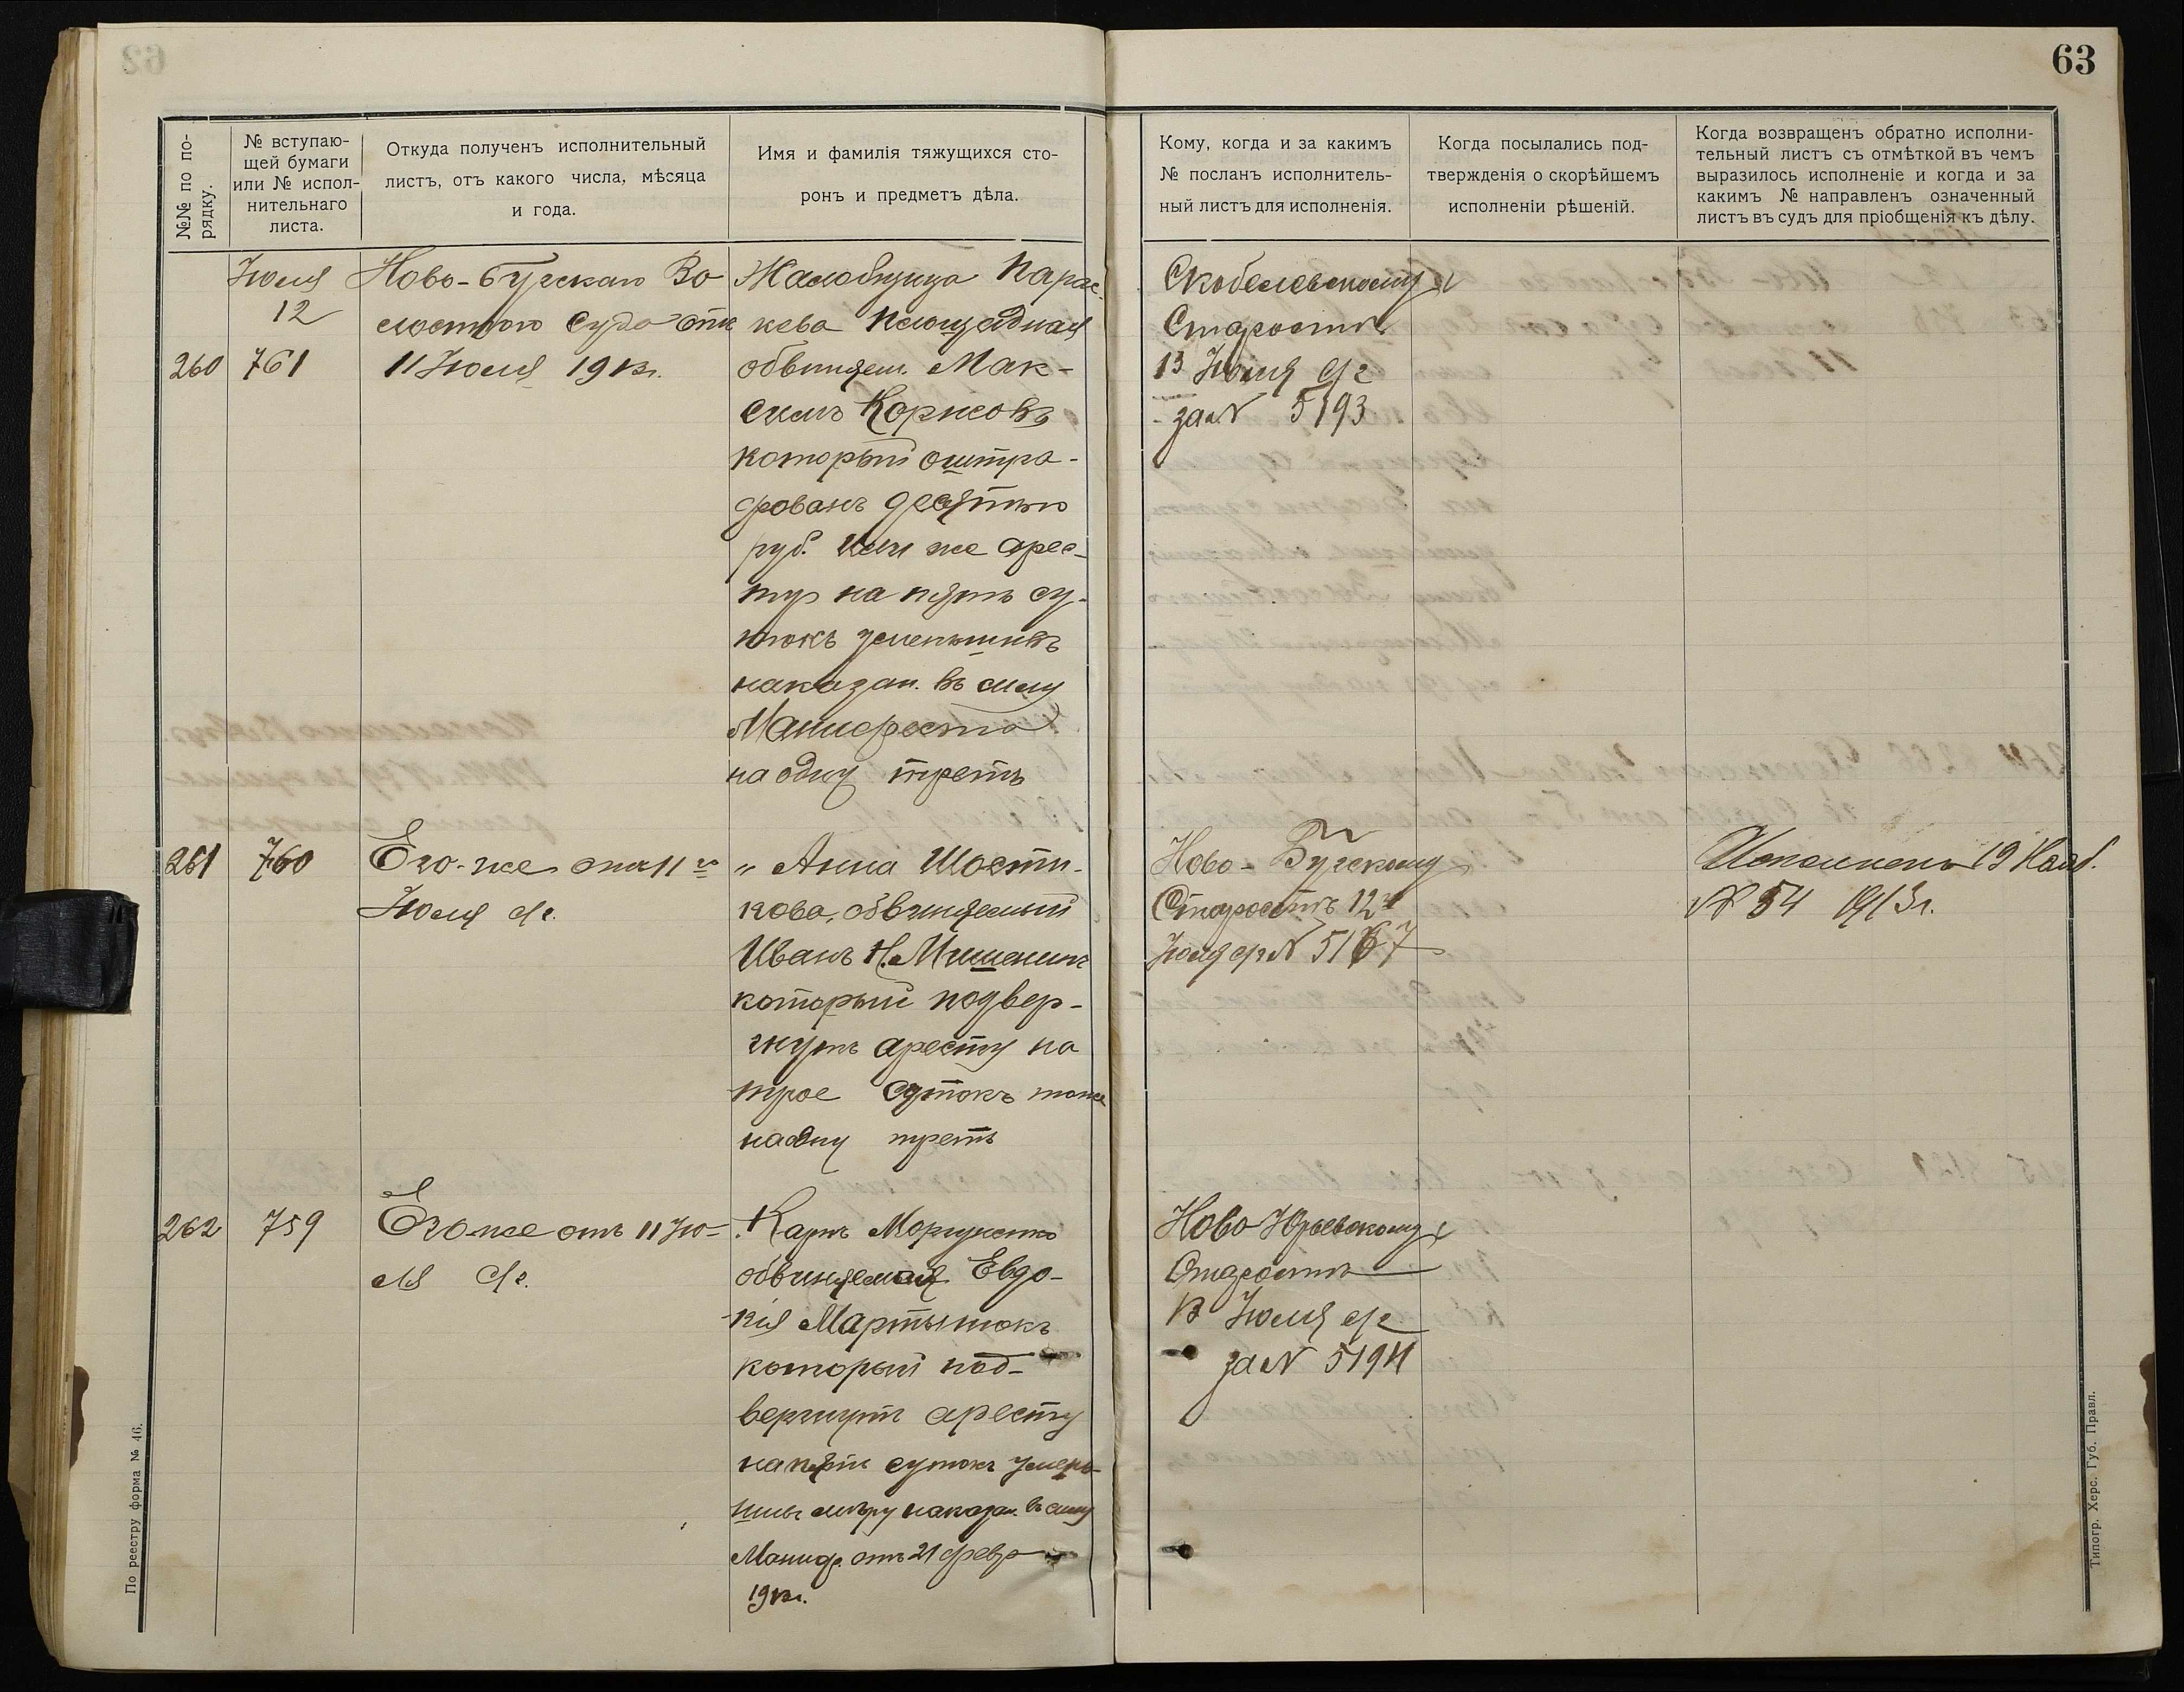 63
№№ по по-
рядку.
№ вступаю-
щей бумаги
или № испол-
нительнаго
листа.
Откуда полученъ исполнительный
листъ, отъ какого числа, мѣсяца
и года.
Имя и фамилія тяжущихся сто-
ронъ и предметъ дѣла.
Кому, когда и за какимъ
№ посланъ исполнитель-
ный листъ для исполненія.
Когда посылались под-
твержденія о скорѣйшемъ
исполненіи рѣшеній.
Когда возвращенъ обратно исполни-
тельный листъ съ отмѣткой въ чемъ
выразилось исполненіе и когда и за
какимъ № направленъ означенный
листъ въ судъ для пріобщенія къ дѣлу.
Іюля
12
260 761
Ново-Бугскаго Во
лостного Суда отъ
11 Іюля 1913г.
Жалобщица Парас-
кева Площадная
обвиняем. Мак-
симъ Коржовъ
который оштра-
фованъ десятью
руб. или же арес-
ту на пять су-
токъ уменьшивъ
наказан. въ силу
Манифеста
на одну треть
Скобелевскому
Старостѣ
13 Іюля с/г
за № 5193
261 760
Его-же отъ 11го
Іюля с/г.
" Анна Шости-
кова, обвиняемый
Иванъ Н. Мишенинъ
который подвер-
гнутъ аресту на
трое сутокъ тоже
на одну треть
Ново-Бугскому
Старостѣ 12го
Іюля с/г № 5167
Исполненъ 19 Нояб.
№ 54 1913г.
262 759
Его-же отъ 11 Ію-
ля с/г.
Карпъ Моргуненко
обвиняемая Евдо-
кія Мартынюкъ
который под-
вергнутъ аресту
на пять сутокъ умень-
шивъ мѣру наказан. въ силу
Маниф. отъ 21 февр
1913г.
Ново-Юрьевскому
Старостѣ
13 Іюля с/г
за № 5194
По реестру форма № 46.
Типогр. Херс. Губ. Правл.